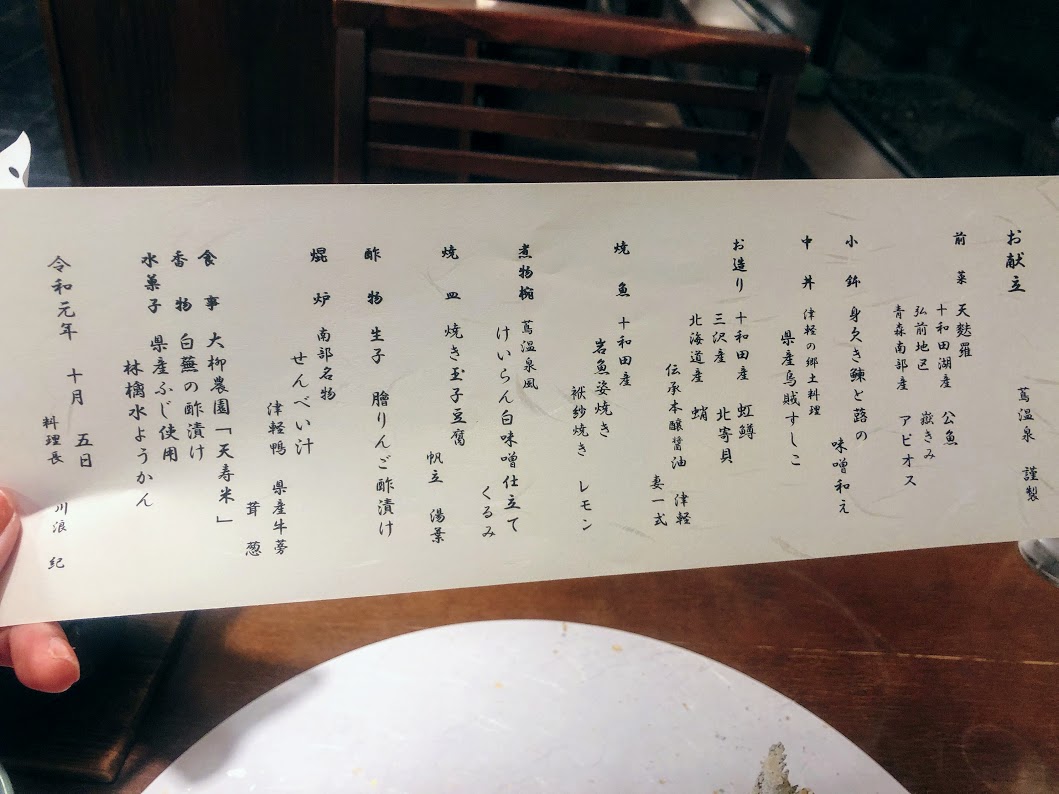 お献立
蔦温泉 謹製
前菜 天麩羅
十和田湖産 公魚
弘前地区 嶽きみ
青森南部産 アピオス
小鉢 身欠き鰊と蕗の
味噌和え
中丼 津軽の郷土料理
県産烏賊すしこ
お造り 十和田産 虹鱒
三沢産 北寄貝
北海道産 蛸
伝承本醸醤油 津軽
妻一式
焼魚 十和田産
岩魚姿焼き
袱紗焼き レモン
煮物椀 蔦温泉風
けいらん白味噌仕立て
くるみ
焼皿 焼き玉子豆腐
帆立 湯葉
酢物 生子 膾りんご酢漬け
焜炉 南部名物
せんべい汁
津軽鴨 県産牛蒡
茸 葱
食事 大柳農園「天寿米」
香物 白蕪の酢漬け
水菓子 県産ふじ使用
林檎水ようかん
令和元年 十月 五日
料理長 川浪 紀